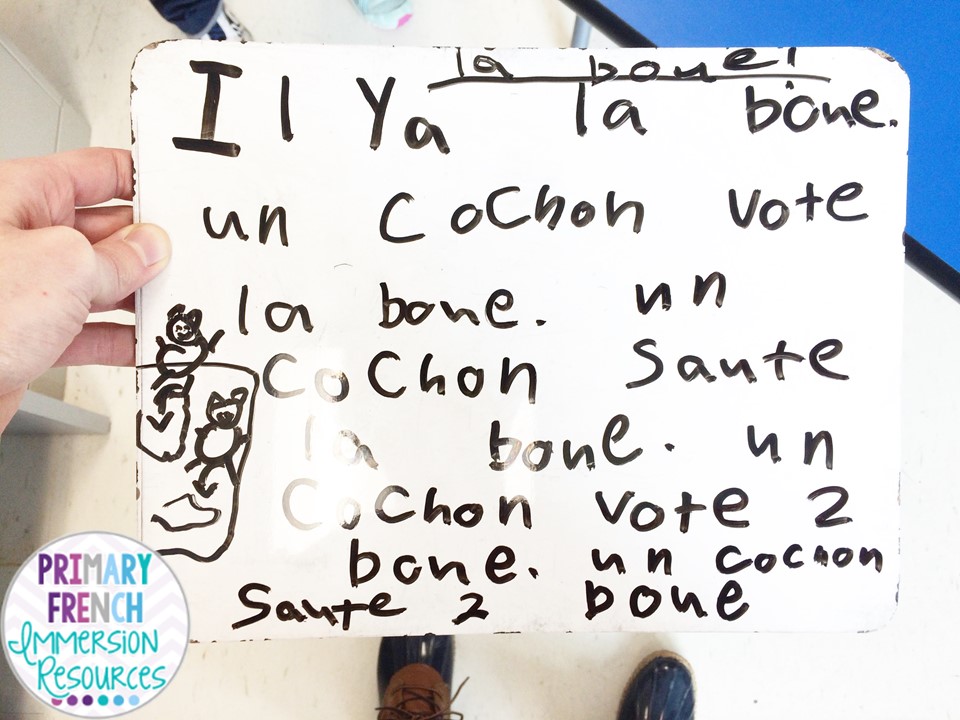 la boue!
Il Ya la boue.
un CoChon vote
la boue. un
CoChon Saute
la boue. un
CoChon vote 2
boue. un cochon
Saute 2 boue
PRIMARY
FRENCH
IMMERSION
RESOURCES